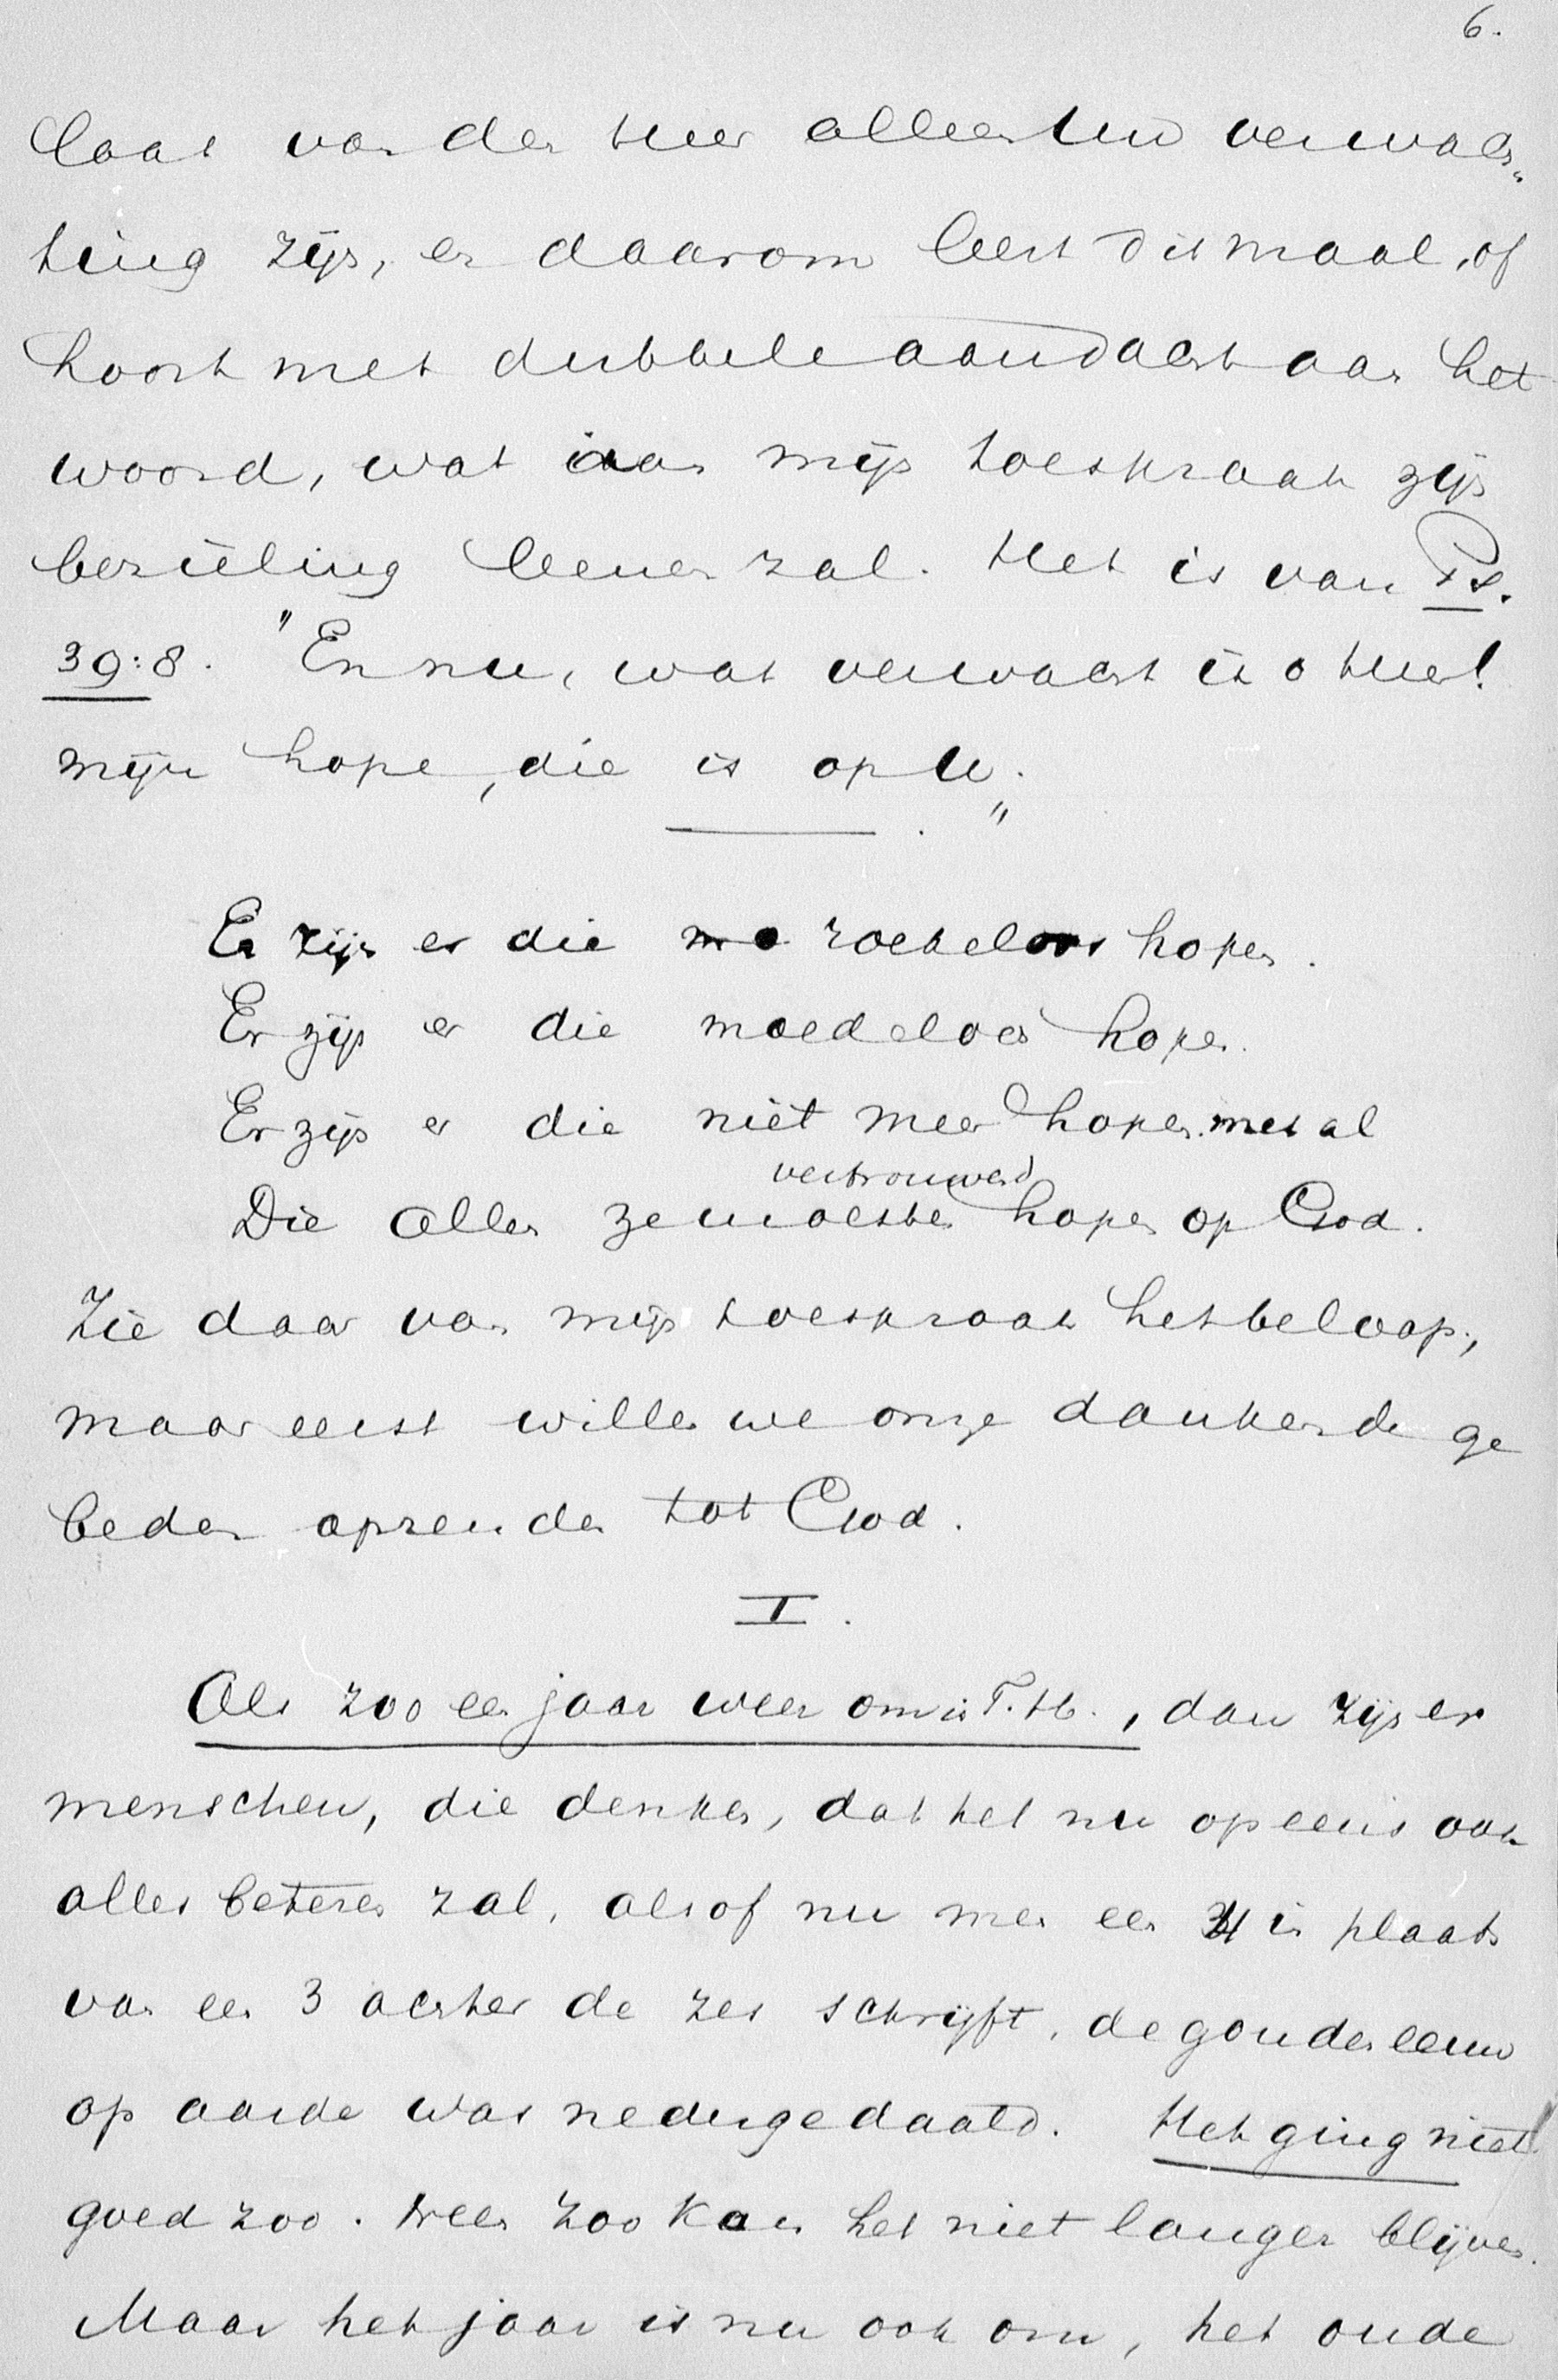 6.
laat van den Heer alleen Uw verwach„
ting zijn, en daarom leest ditmaal, of
hoort met dubbele aandacht aan het
woord, wat aan mijn toespraak zijn
bezieling leenen zal. Het is van Ps.
39:8. "En nu, wat verwacht ik o Heer!
mijn hope, die is op U."
Er zijn er die roekeloos hopen.
Er zijn er die moedeloos hopen.
Er zijn er die niet meer hopen met al
vertrouwend
Die allen zij moesten hopen op God.
Zie daar van mijn toespraak het beloop,
maar eerst willen we onze dankende ge
beden opzenden tot God.
I.
Als zoo een jaar weer om is T.H., dan zijn er
menschen, die denken, dat het nu opeens ook
alles beteren zal, alsof nu men een 4 in plaats
van een 3 achter de zes schrijft, de gouden eeuw
op aarde was nedergedaald. Het ging niet
goed zoo. Neen zoo kan het niet langer blijven.
Maar het jaar is nu ook om, het oude